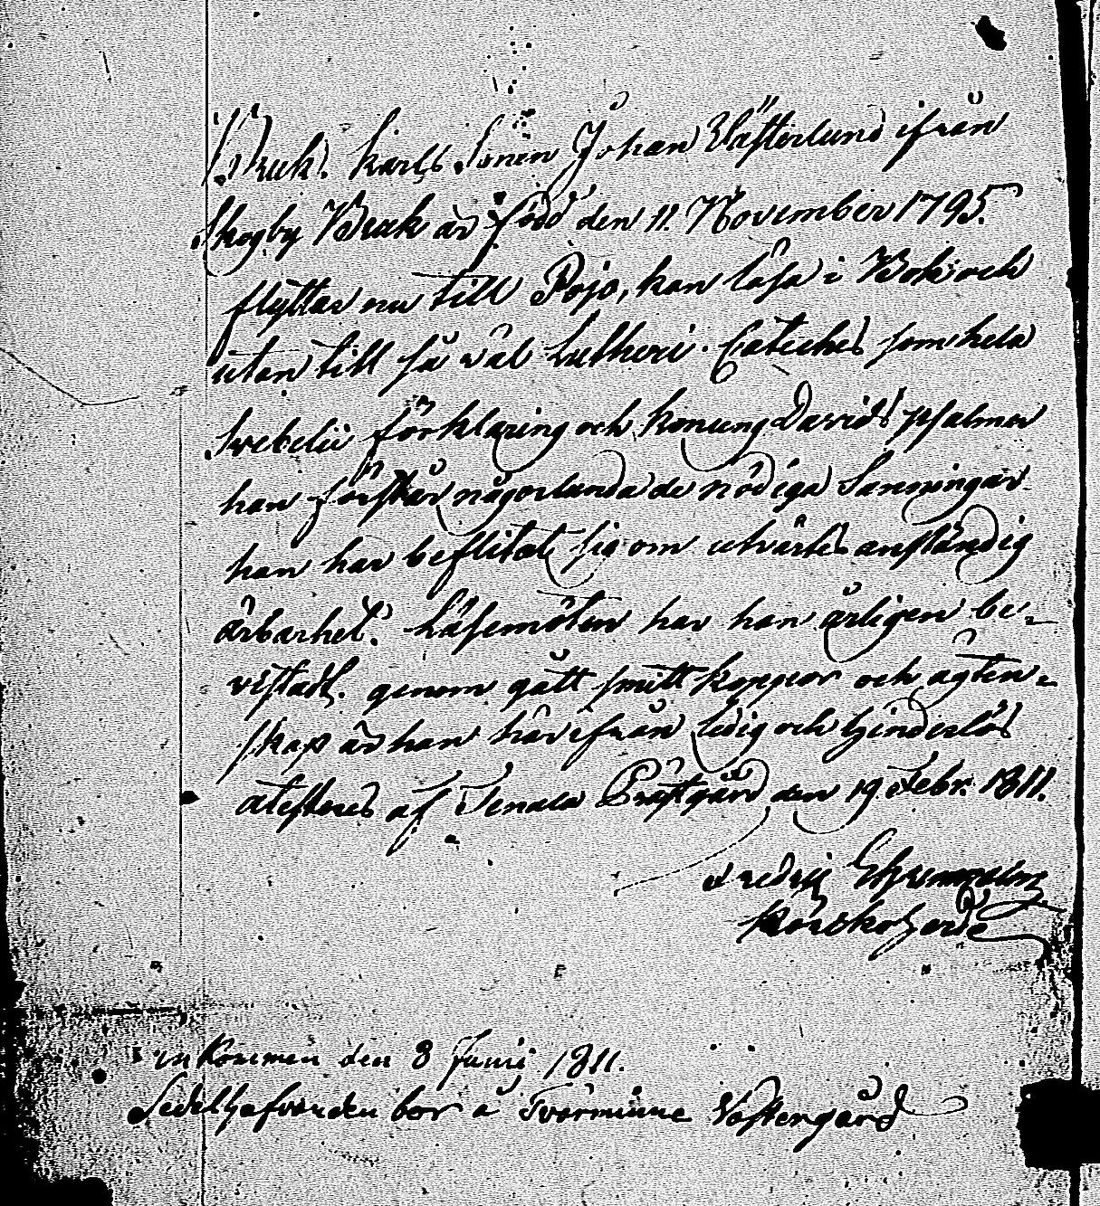 Bruk. karls Sonen Johan Västerlund ifrån
Skogby Bruk är född den 11. November 1795.
flyttar nu till Pojo, kan läsa i Bok och
utan till så väl Lutheri Cateches som hela
Svebelii förklaring och Konung Davids psalmer
han förstår någorlunda de nödiga Sanningar
han har beflitat sig om utvärtes anständig
ärbarhet. Läsemöten har han årligen be-
vistadt. genom gått smittkoppor och ägten-
skap är han härifrån ledig och hinderlös
atesteras af Tenala Prästgård den 19 Febr. 1811.
Fredric
inkommen den 8 Junij 1811.
Sedelhafvanden bor å Tvärminne Västergård